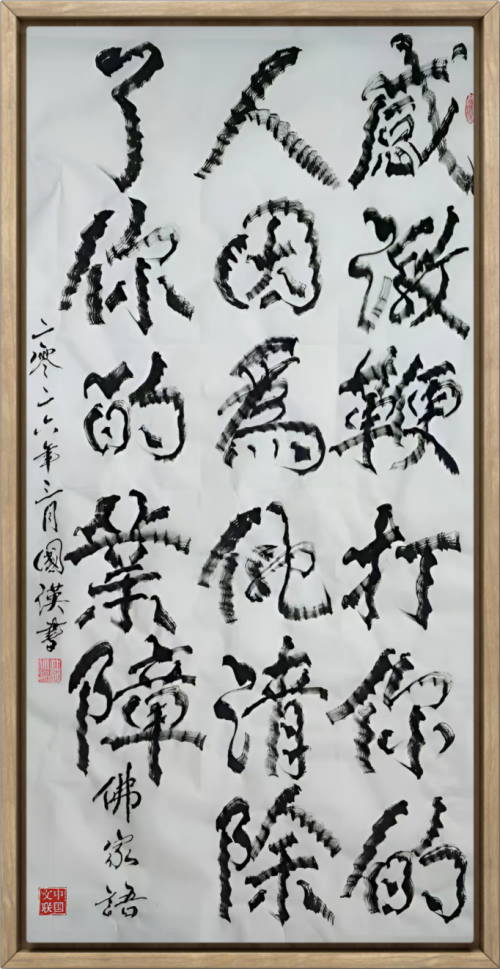 感激鞭打你的
人因為他清除
了你的業障
佛家語
二零二六年三月國漢書
中国文联